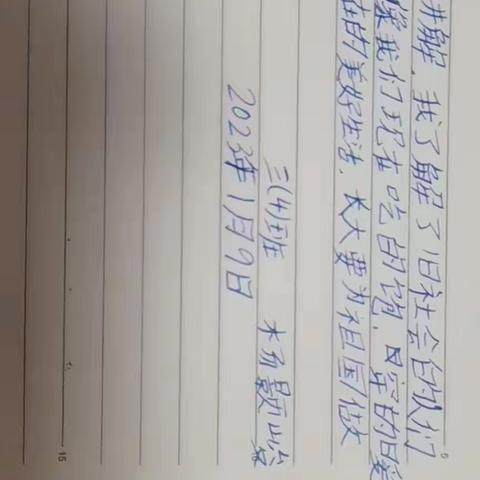 讲解,我了解了旧社会的人们
像我们现在吃的饱,穿的暖
在的美好生活,长大要为祖国做
三(4)班
2023年1月9日
15